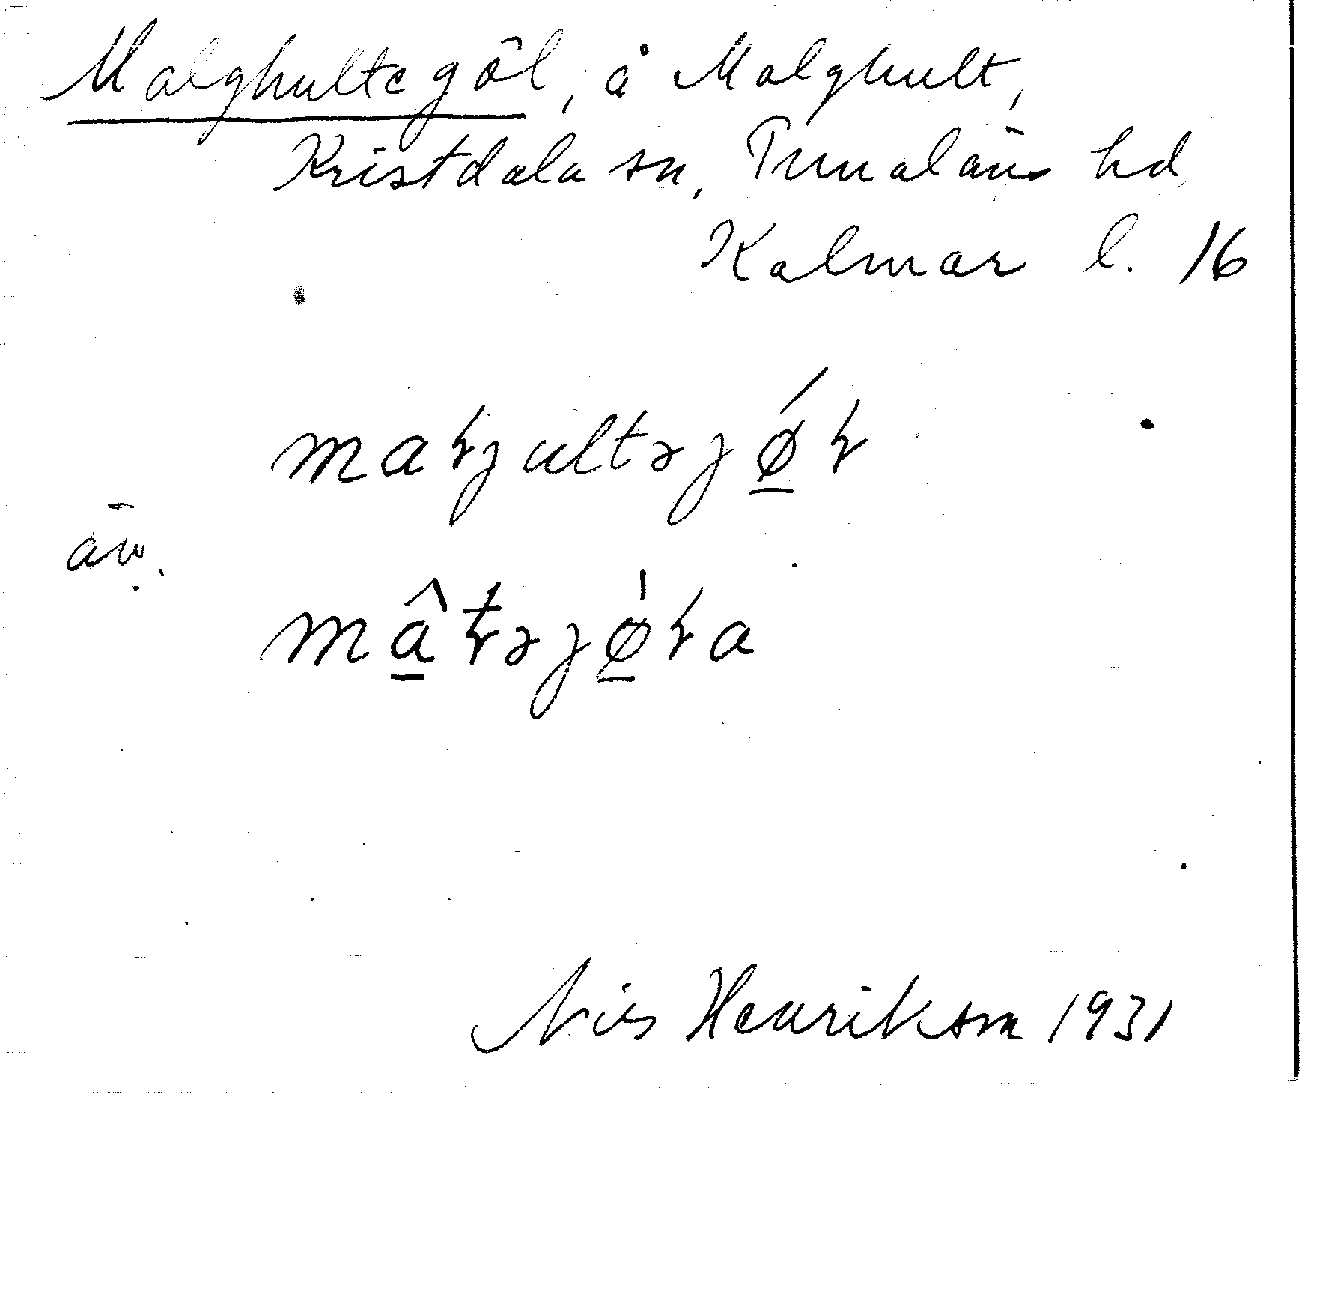 Malghultegöl, å Malghult,
Kristdala sn, Tunaläns hd
Kalmar l. 16
maɽjultəjǿ̲ɽ
äv.
mâ̲ɽəjø̲̍ɽa
Nils Henrikson 1931